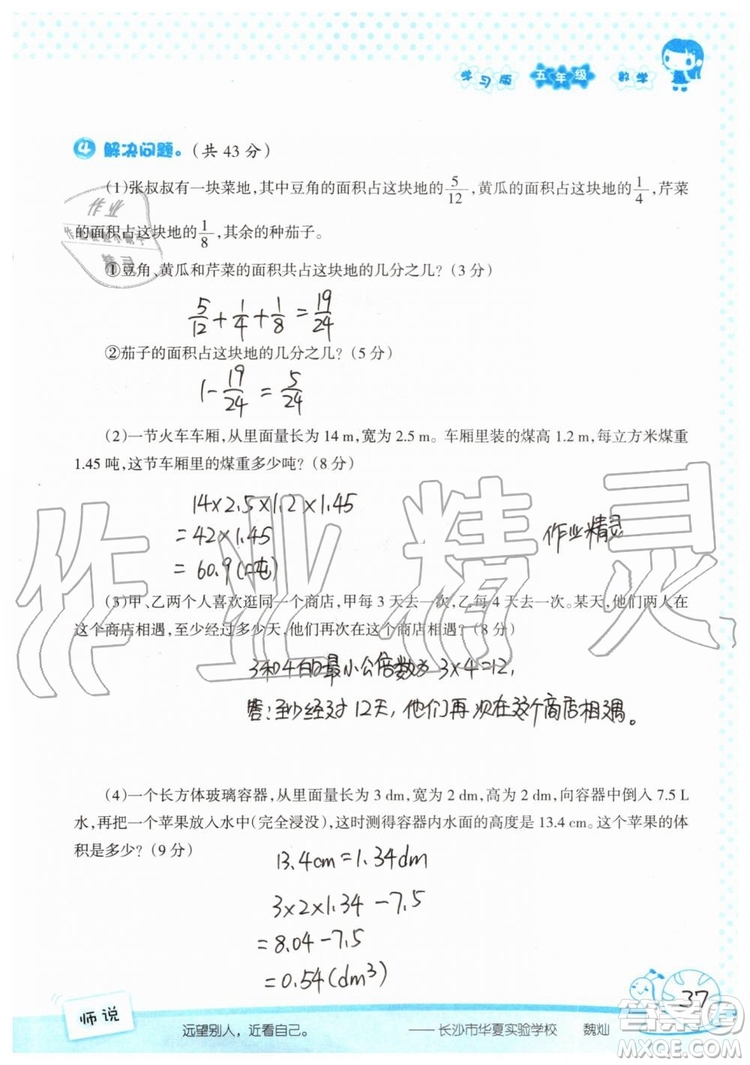 学习版 五年级 数学
④ 解决问题。(共 43 分)
(1)张叔叔有一块菜地,其中豆角的面积占这块地的5/12,黄瓜的面积占这块地的1/4,芹菜
的面积占这块地的1/8,其余的种茄子。
①豆角、黄瓜和芹菜的面积共占这块地的几分之几?(3 分)
5/12+1/4+1/8=19/24
②茄子的面积占这块地的几分之几?(5 分)
1-19/24=5/24
(2)一节火车车厢,从里面量长为 14 m,宽为 2.5 m。车厢里装的煤高 1.2 m,每立方米煤重
1.45 吨,这节车厢里的煤重多少吨?(8 分)
14×2.5×1.2×1.45
=42×1.45
=60.9(吨)
作业精灵
(3)甲、乙两个人喜欢逛同一个商店,甲每 3 天去一次,乙每 4 天去一次。某天,他们两人在
这个商店相遇,至少经过多少天,他们再次在这个商店相遇?(8 分)
3和4的最小公倍数为3×4=12,
答:至少经过12天,他们再次在这个商店相遇。
(4)一个长方体玻璃容器,从里面量长为 3 dm,宽为 2 dm,向容器中倒入 7.5 L
水,再把一个苹果放入水中(完全浸没),这时测得容器内水面的高度是 13.4 cm。这个苹果的体
积是多少?(9 分)
13.4cm=1.34dm
3×2×1.34-7.5
=8.04-7.5
=0.54(dm³)
师说
远望别人,近看自己。 ——长沙市华夏实验学校 魏灿
37
作业精灵
答案圈
MXQE.COM